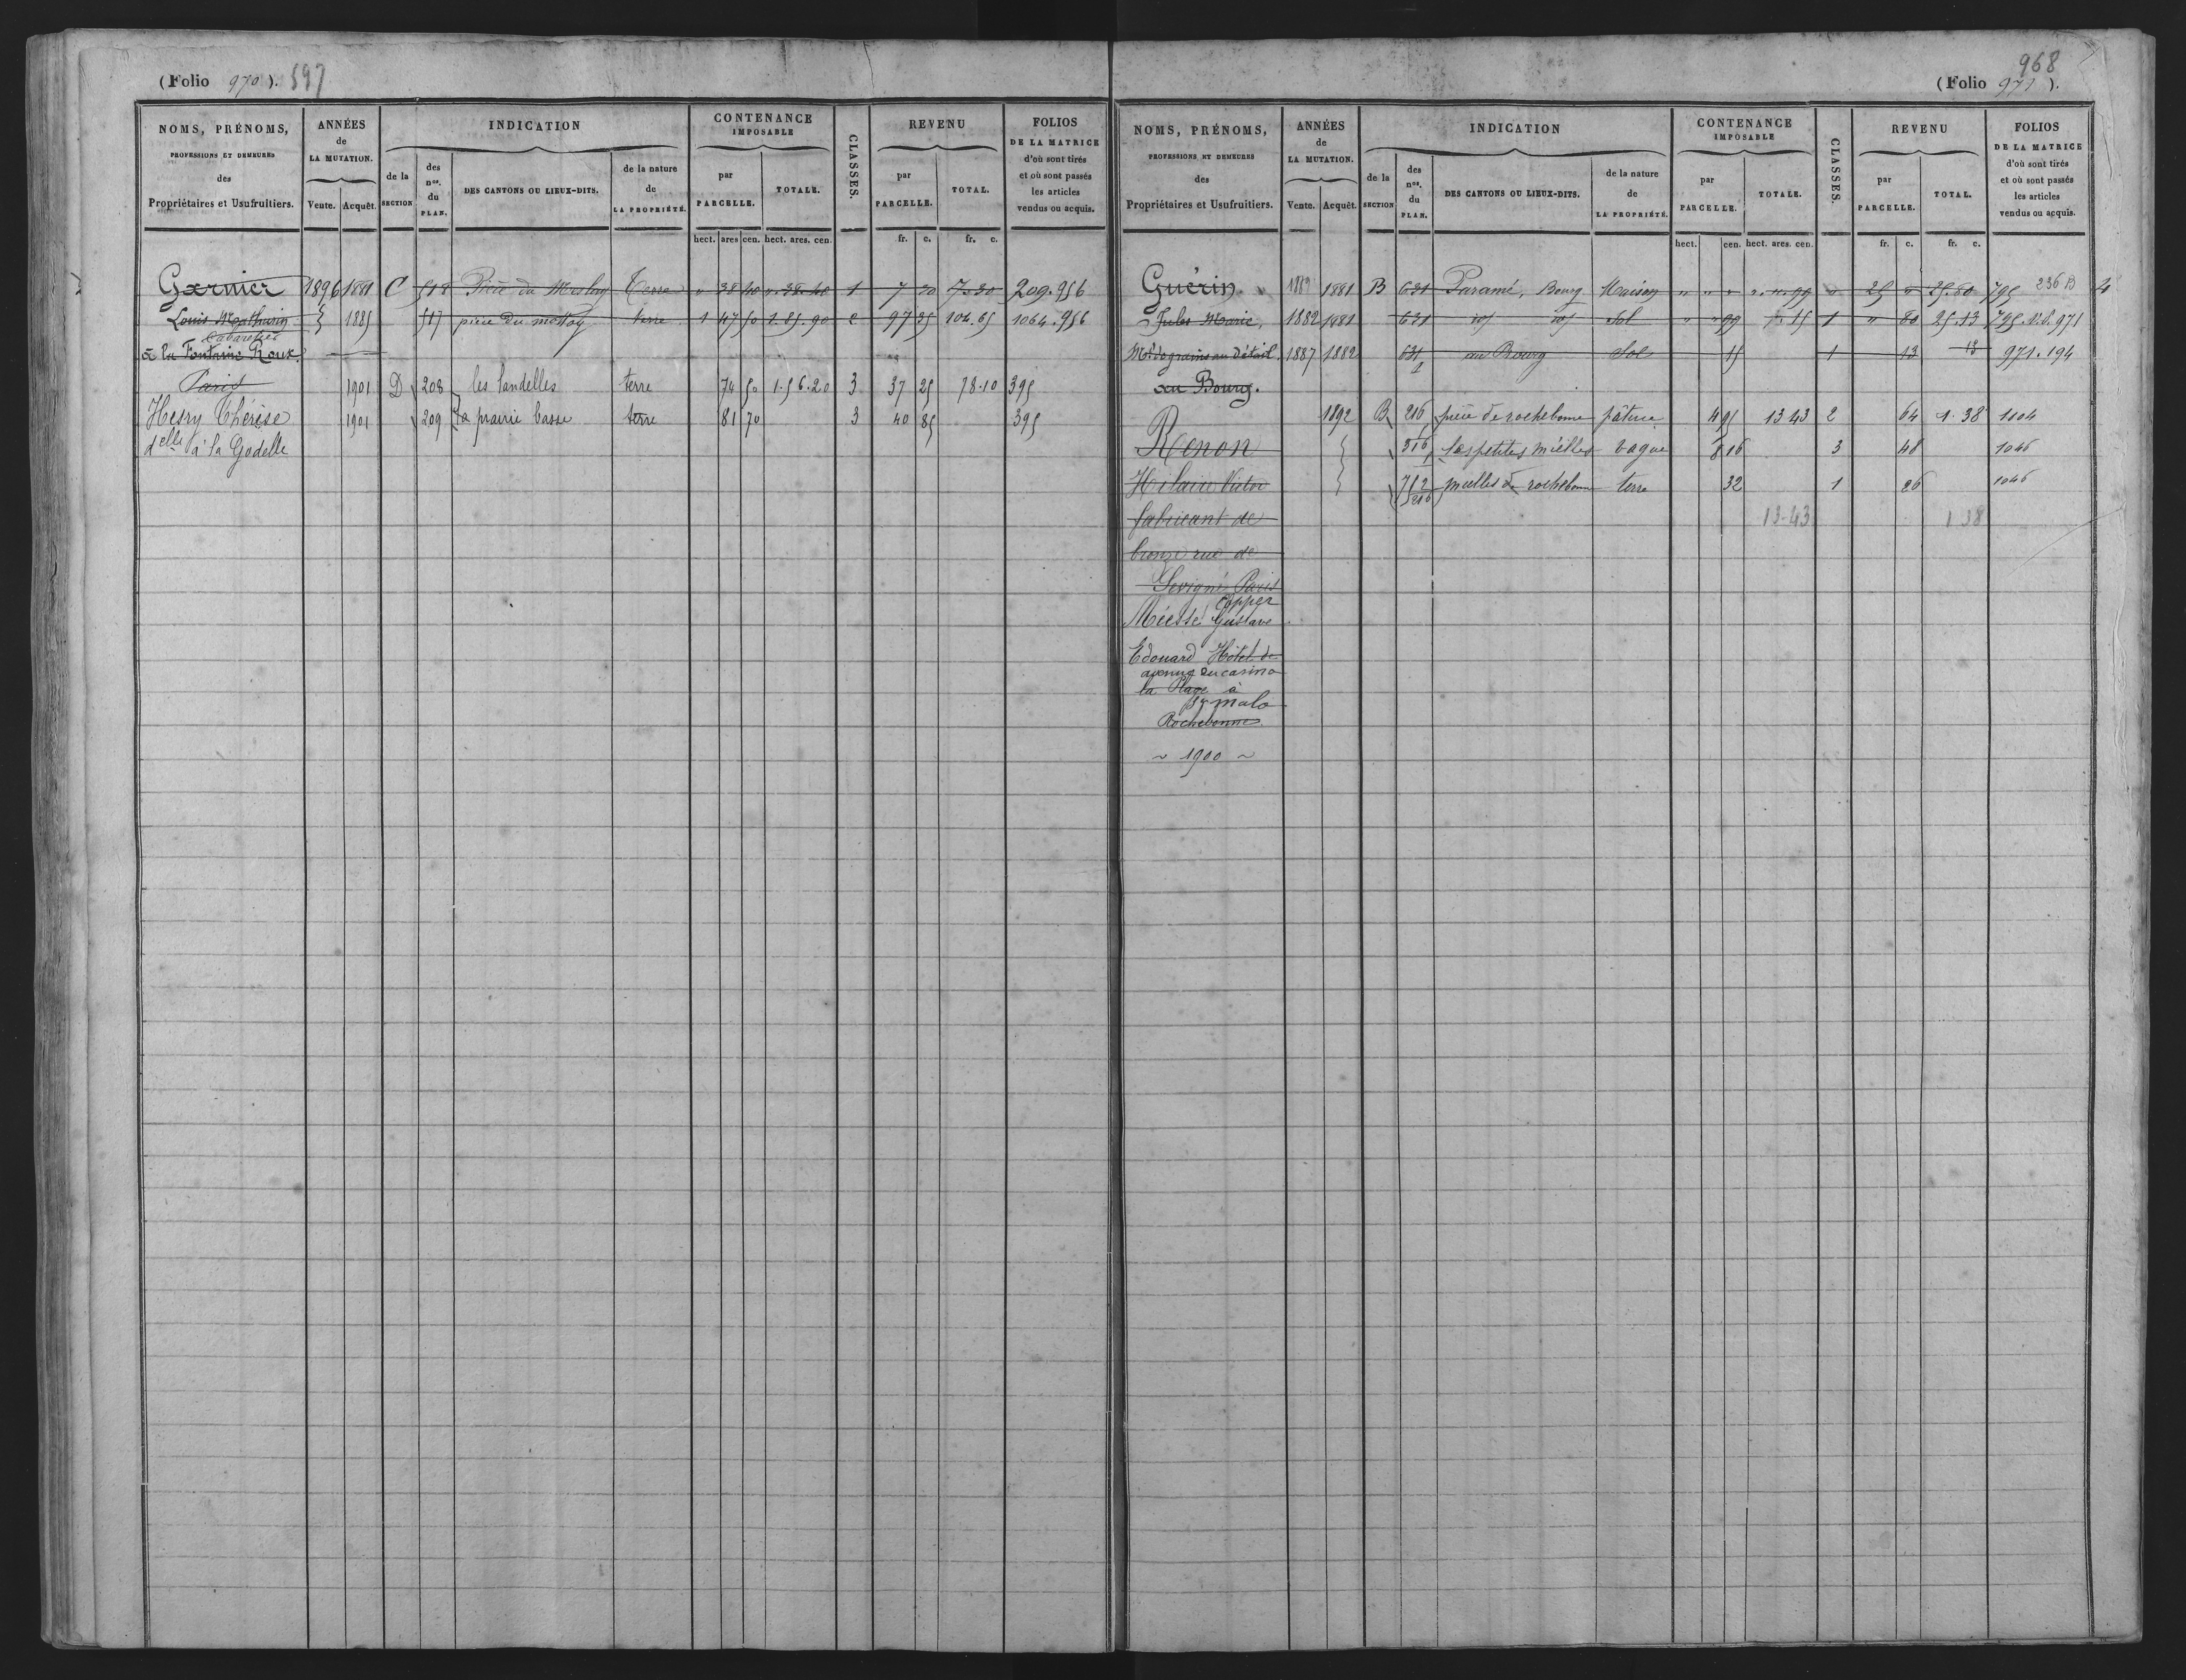 (Folio 970). 597
NOMS, PRÉNOMS, PROFESSIONS ET DEMEURES des Propriétaires et Usufruitiers.
ANNÉES de LA MUTATION. Vente. Acquêt.
INDICATION de la SECTION des nos. du PLAN. DES CANTONS OU LIEUX-DITS. de la nature de LA PROPRIÉTÉ.
CONTENANCE IMPOSABLE par PARCELLE. TOTALE.
CLASSES.
REVENU par PARCELLE. TOTAL.
FOLIOS DE LA MATRICE d'où sont tirés et où sont passés les articles vendus ou acquis.
hect. ares cen. hect. ares. cen. fr. c. fr. c.
Garnier 1896 1881 C 518 Pièce du Terre " 38 40 ". 38. 40 1 7 30 7.30 209.956
Louis Mathurin } 1885 517 pièce du terre 1 47 50 1.85.90 2 97 35 104.65 1064.956
Cabaretier
à la Fontaine Roux.
Paris 1901 D 208 les landelles terre 74 50 1.56.20 3 37 25 78.10 395
Hesry Thérèse 1901 209 la prairie basse terre 81 70 3 40 85 395
delle à la Godelle
968
(Folio 971).
NOMS, PRÉNOMS, PROFESSIONS ET DEMEURES des Propriétaires et Usufruitiers.
ANNÉES de LA MUTATION. Vente. Acquêt.
INDICATION de la SECTION des nos. du PLAN. DES CANTONS OU LIEUX-DITS. de la nature de LA PROPRIÉTÉ.
CONTENANCE IMPOSABLE par PARCELLE. TOTALE.
CLASSES.
REVENU par PARCELLE. TOTAL.
FOLIOS DE LA MATRICE d'où sont tirés et où sont passés les articles vendus ou acquis.
hect. cen. hect. ares. cen. fr. c. fr. c.
Guérin 1889 1881 B 631 Paramé, Bourg Maison " " " ". ". 99 " 25 " 25.80 795 236 B
Jules Marie, 1882 1881 631 id id Sol " " 99 1.15 1 " 80 25.13 795. 971
Md de grains au détail 1887 1882 631 1 au Bourg Sol 15 1 13 13 971.194
au Bourg.
1892 B 216 pièce de rochebonne pâture 4 95 13 43 2 64 1.38 1104
Renon } 316 1 les petites mielles vague 8 16 3 48 1046
Hilaire Victor } 712 216 mielles de rochebonne terre 32 1 26 1046
fabricant de 13-43 1 38
bronze rue de
Sevigné Paris
Copper
Méesse Gustave
Edouard Hôtel de
avenue du casino
la Plage à
St malo
Rochebonne
~ 1900 ~